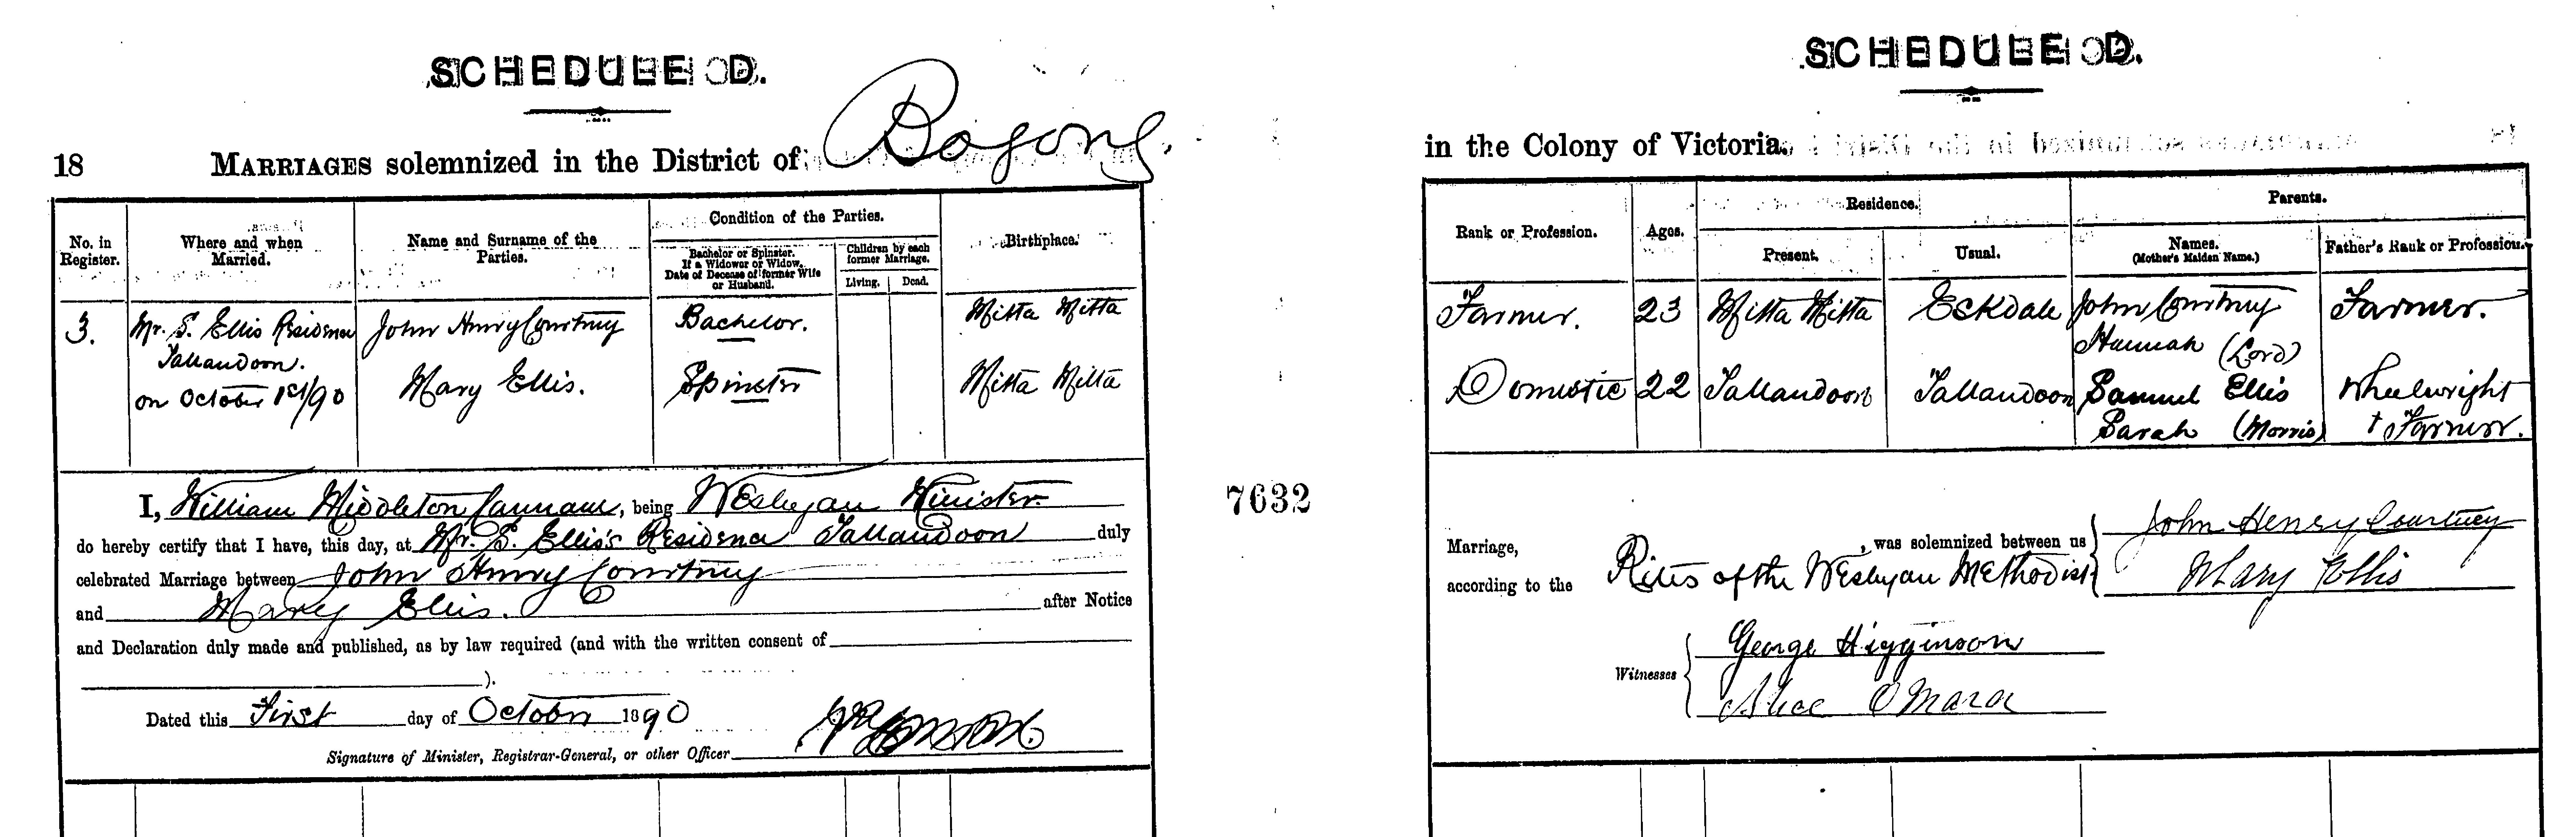 SCHEDULE D.
18 MARRIAGES solemnized in the District of Bogong.
No. in Register.
Where and when Married.
Name and Surname of the Parties.
Condition of the Parties.
Bachelor or Spinster.
If a Widower or Widow,
Date of Decease of former Wife
or Husband.
Children by each
former Marriage.
Living.
Dead.
Birthplace.
3.
Mr. S. Ellis Residence
Tallandoon.
on October 1st/90
John Henry Courtney
Mary Ellis.
Bachelor.
Spinster
Mitta Mitta
Mitta Mitta
I, William Middleton, being Wesleyan Minister
do hereby certify that I have, this day, at Mr. S. Ellis's Residence Tallandoon duly
celebrated Marriage between John Henry Courtney
and Mary Ellis. after Notice
and Declaration duly made and published, as by law required (and with the written consent of
).
Dated this First day of October 1890
Signature of Minister, Registrar-General, or other Officer
7632
SCHEDULE D.
in the Colony of Victoria.
Rank or Profession.
Ages.
Residence.
Present.
Usual.
Parents.
Names.
(Mother's Maiden Name.)
Father's Rank or Profession.
Farmer.
23
Mitta Mitta
Eskdale
John Courtney
Hannah (Lord)
Farmer.
Domestic
22
Tallandoon
Tallandoon
Samuel Ellis
Sarah (Morris)
Wheelwright
+ Farmer.
Marriage, was solemnized between us
according to the Rites of the Wesleyan Methodist
John Henry Courtney
Mary Ellis
Witnesses
George Higginson
Alice O'Mara